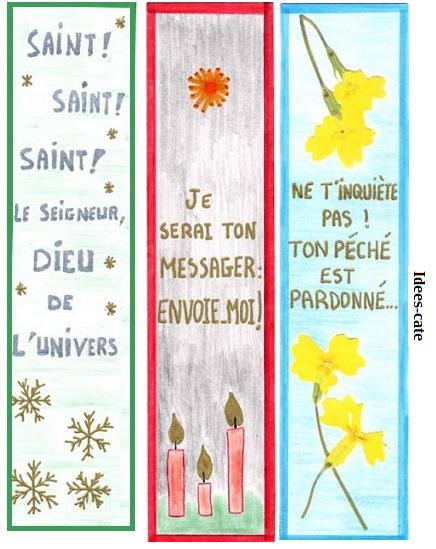 SAINT!
SAINT!
SAINT!
LE SEIGNEUR,
DIEU
DE
L'UNIVERS
JE
SERAI TON
MESSAGER:
ENVOIE-MOI!
NE T'INQUIÈTE
PAS !
TON PÉCHÉ
EST
PARDONNÉ...
Idees-cate